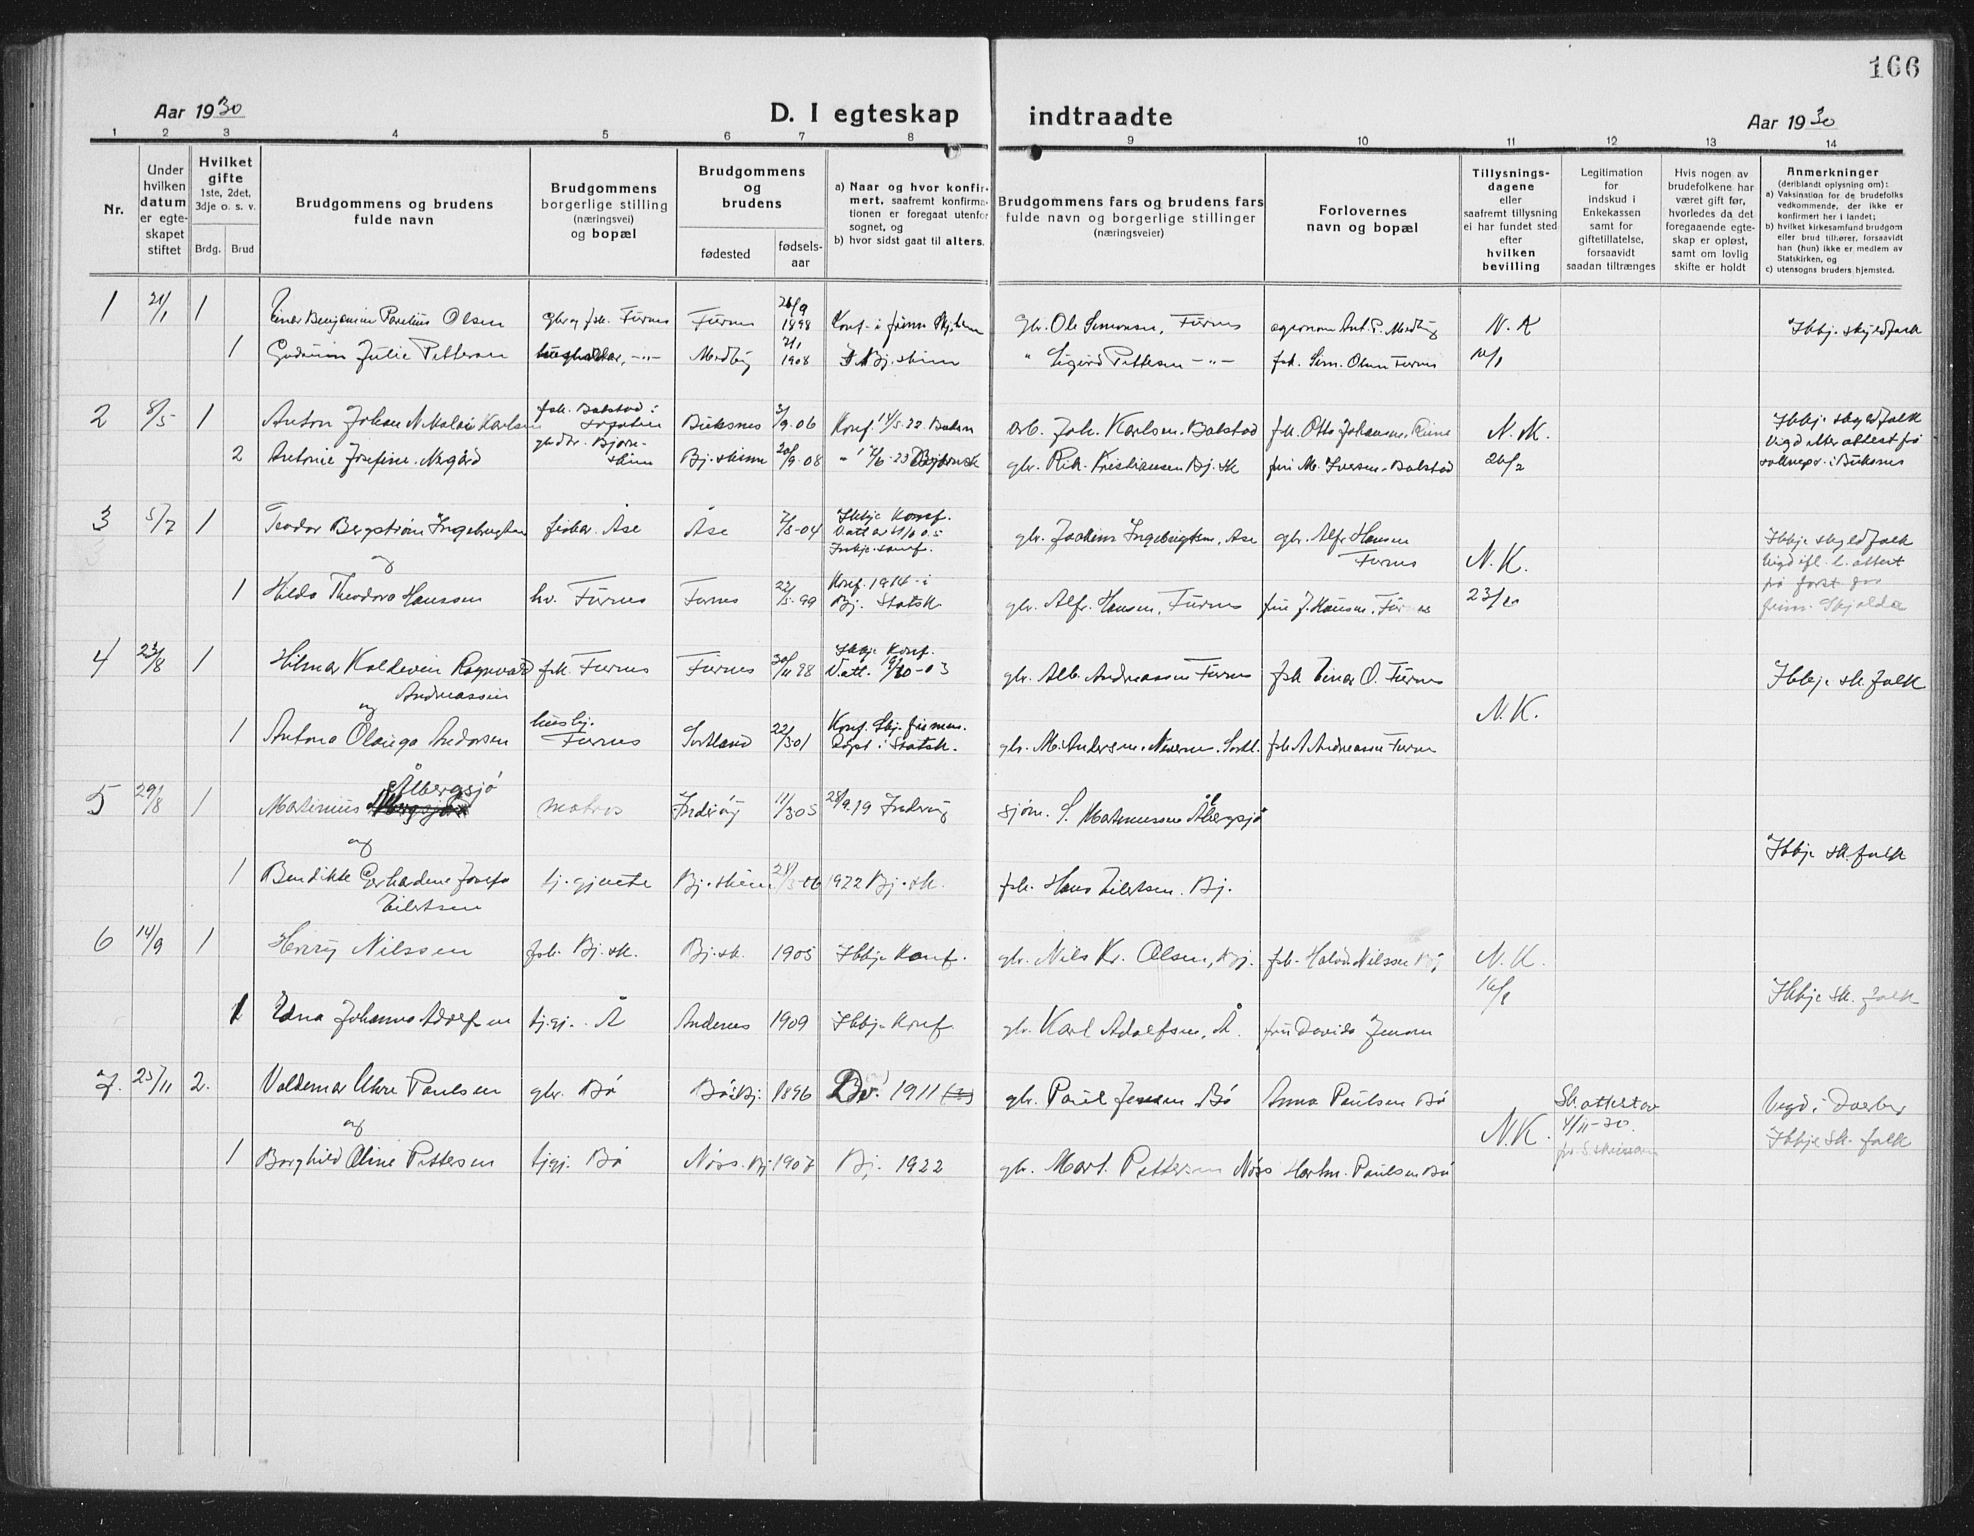 166
Aar 1930
D. I egteskap indtraadte
Aar 1930
1 2 3 4 5 6 7 8 9 10 11 12 13 14
Nr.
Under hvilken datum er egte-skapet stiftet
Hvilket gifte
1ste, 2det, 3dje o. s. v.
Brdg. Brud
Brudgommens og brudens fulde navn
Brudgommens borgerlige stilling (næringsvei) og bopæl
Brudgommens og brudens
fødested
fødsels-aar
a) Naar og hvor konfir-mert, saafremt konfirma-tionen er foregaat utenfor sognet, og
b) hvor sidst gaat til alters.
Brudgommens fars og brudens fars fulde navn og borgerlige stillinger (næringsveier)
Forlovernes navn og bopæl
Tillysnings-dagene eller saafremt tillysning ei har fundet sted efter hvilken bevilling
Legitimation for indskud i Enkekassen samt for giftetillatelse, forsaavidt saadan tiltrænges
Hvis nogen av brudefolkene har været gift før, hvorledes da det foregaaende egte-skap er opløst, samt om lovlig skifte er holdt
Anmerkninger
(deriblandt oplysning om):
a) Vaksination for de brudefolks vedkommende, der ikke er konfirmert her i landet;
b) hvilket kirkesamfund brudgom eller brud tilhører, forsaavidt han (hun) ikke er medlem av Statskirken, og
c) utensogns bruders hjemsted.
1 21/1 1 Einar Benjamin Parelius Olsen gbr og fsk. Furnes Furnes 26/9 1898 Konf. i gbr. Ole Simonsen, Furnes agronom Ant. P. Medby N. K Ikkje skyldfolk
1 Gudrun Julie Pettersen -"- Medby 1908 Bj. skinn " Sigurd Pettersen -"- fsk. Sim. Olsen Furnes
2 8/5 1 Anton Johan Nikolai Karlsen fsk. Balstad i Buksnes 3/9-06 Konf. 14/5-22 arb. Joh. Karlsen. Balstad fsk. Otto Johansen, N. K. Ikkje skyldfolk
2 Antonie Josefine Nygård Bjørn-skinn Bj. skinn 20/9-08 gbr. Kristiansen Bj. sk fru M. Iversen. Balstad 26/2 Vigd etter attest frå soknepr. i Buksnes
3 5/7 1 Teodor Bergstrøm Ingebrigtsen fiskar. Åse Åse 7/8-04 Ikkje konf. gbr. Joakim Ingebrigtsen, Åse gbr. Alfr Hansen Furnes N. K. Ikkje skyldfolk
og
1 Hilda Theodora Hanssen hv. Furnes Furnes 22/5-99 Konf. 1914 i Bj. Statsk. gbr. Alfr. Hansen, Furnes fru J. Hansen, Furnes
4 23/8 1 Hilmar Koldevin Ragnvald Andreassen fsk. Furnes Furnes 30/11 98 Ikkje Konf. gbr. Alb. Andreassen Furnes fsk Einar O. Furnes N. K. Ikkje sk. folk
og
1 Antona Olauga Andersen husbj. Furnes Sortland 22/3 01 gbr. M. Andersen, Sortl. fsk A Andreassen Furnes
5 29/8 1 Martinius Ålbergsjø matros Inderøy 11/3 05 28/9. 19 Inderøy sjøm. S. Martinussen Ålbergsjø Ikkje sk. folk
og
1 Bendikte Gerhardine Josefa Eilertsen tj. gjente Bj. skinn 21/3-06 1922 Bj. sk. fsk. Hans Eilertsen. Bj.
6 14/9 1 Henry Nilssen fsk. Bj. sk. Bj. sk. 1905 Ikkje konf. gbr. Nils Kr. Olsen, Bj. fsk. Halvd Nilssen Bj N. K. Ikkje sk. folk
1 Edna Johanna Adolfsen tj.gj. Å Andenes 1909 Ikkje konf. gbr. Karl Adolfsen, Å. fru Davida Jensen
7. 25/11 2. Valdemar Uhre Paulsen gbr. Bø Bø i Bj. 1896 1911 gbr. Paul Jensen Bø Anna Paulsen Bø N. K. Sk. attest av 4/11-30. Vigd i Dverberg
og
1 Borghild Oline Pettersen tjgj. Bø Nøss. Bj 1907 Bj. 1922 gbr. Mart. Pettersen Nøss Hartm. Paulsen Bø Ikkje sk. folk